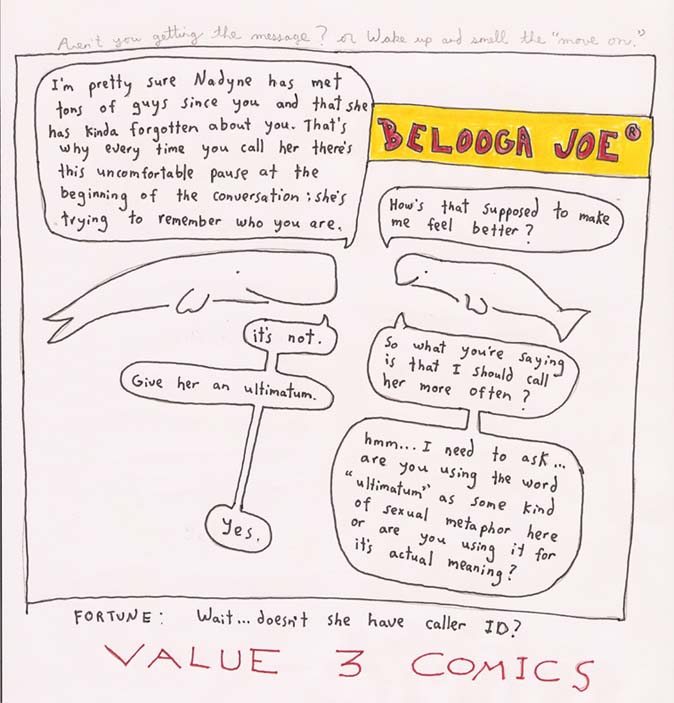 Aren't you getting the message? or Wake up and smell the "move on."
I'm pretty sure Nadyne has met
tons of guys since you and that she
has kinda forgotten about you. That's
why every time you call her there's
this uncomfortable pause at the
beginning of the conversation: she's
trying to remember who you are.
BELOOGA JOE®
How's that supposed to make
me feel better?
it's not.
So what you're saying
is that I should call
her more often?
Give her an ultimatum.
hmm... I need to ask...
are you using the word
"ultimatum" as some kind
of sexual metaphor here
or are you using it for
it's actual meaning?
Yes.
FORTUNE: Wait... doesn't she have caller ID?
VALUE 3 COMICS